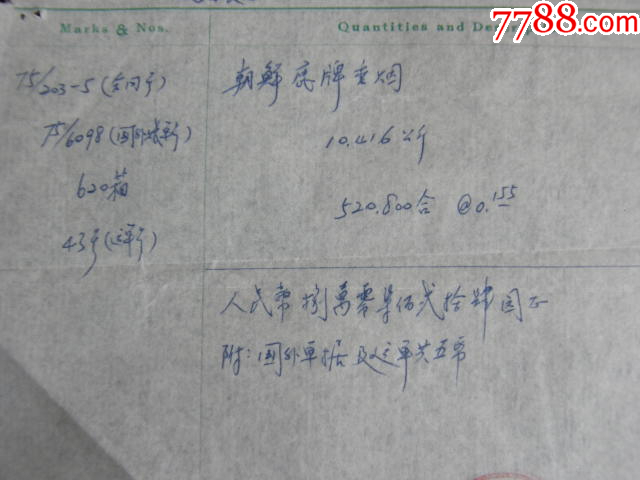 7788.com
Marks & Nos.
Quantities and De
75/203-5(合同号)
朝鲜 牌香烟
75/6098(国外账单号)
10.416公斤
620箱
520.800合 @0.155
43号(运单号)
人民币捌萬零柒佰贰拾肆圆正
附:国外单据及运单共五帋